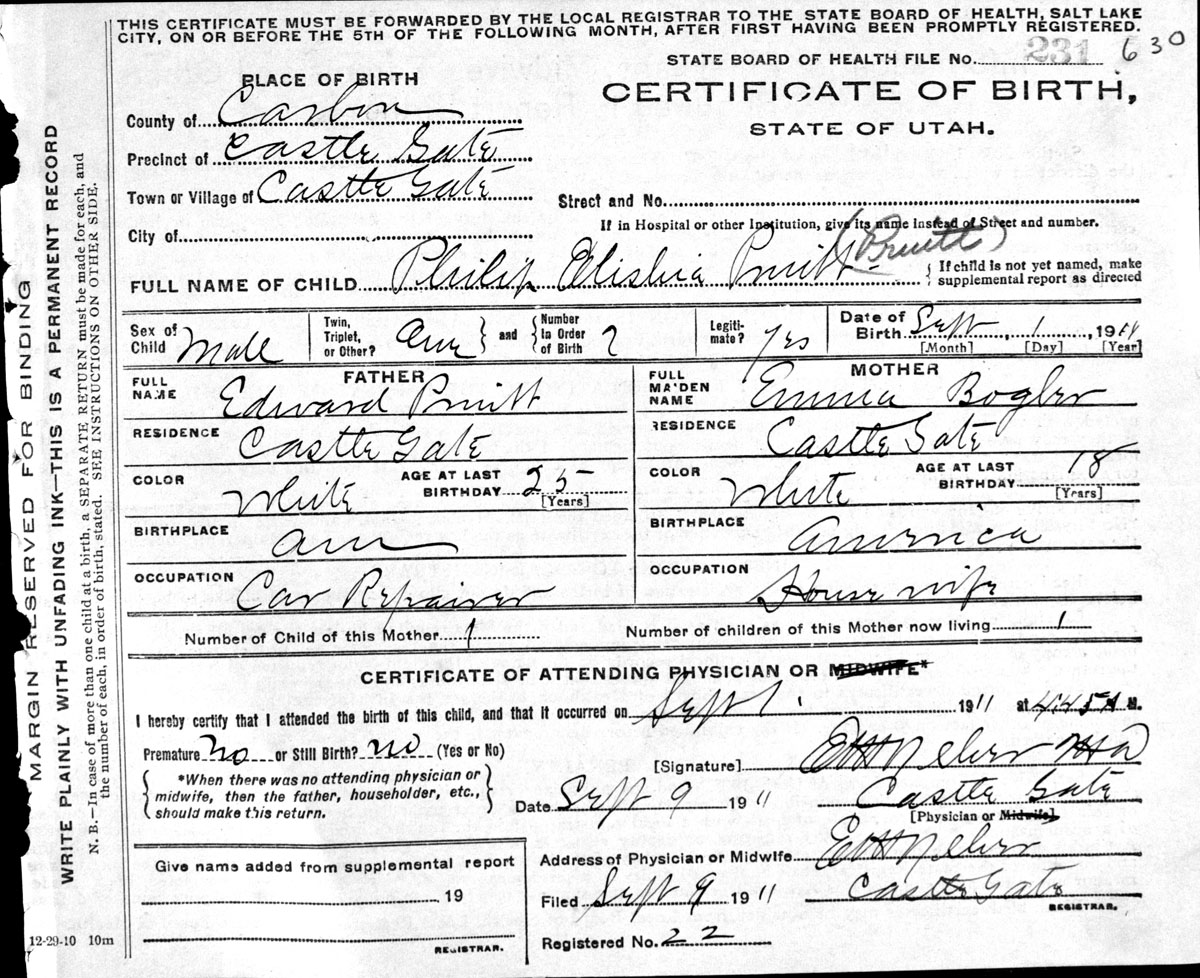 THIS CERTIFICATE MUST BE FORWARDED BY THE LOCAL REGISTRAR TO THE STATE BOARD OF HEALTH, SALT LAKE
CITY, ON OR BEFORE THE 5TH OF THE FOLLOWING MONTH, AFTER FIRST HAVING BEEN PROMPTLY REGISTERED.
STATE BOARD OF HEALTH FILE No. 231 630
PLACE OF BIRTH
CERTIFICATE OF BIRTH,
STATE OF UTAH.
County of Carbon
Precinct of Castle Gate
Town or Village of Castle Gate
Street and No.
If in Hospital or other Institution, give its name instead of Street and number.
City of
(Pruitt)
FULL NAME OF CHILD Philip Elishia Pruitt
If child is not yet named, make
supplemental report as directed
Sex of Child Male
Twin, Triplet, or Other? One and Number In Order of Birth
Legiti-mate? Yes
Date of Birth Sept 1, 1911
[Month] [Day] [Year]
FATHER
FULL NAME Edward Pruitt
RESIDENCE Castle Gate
COLOR White AGE AT LAST BIRTHDAY 25
[Years]
BIRTHPLACE Am
OCCUPATION Car Repairer
MOTHER
FULL MAIDEN NAME Emma Bogler
RESIDENCE Castle Gate
COLOR White AGE AT LAST BIRTHDAY 18
[Years]
BIRTHPLACE America
OCCUPATION House wife
Number of Child of this Mother 1 Number of children of this Mother now living 1
CERTIFICATE OF ATTENDING PHYSICIAN OR MIDWIFE*
I hereby certify that I attended the birth of this child, and that it occurred on Sept 1. 1911 at 4:45 A M.
Premature No or Still Birth? no (Yes or No)
*When there was no attending physician or
midwife, then the father, householder, etc.,
should make this return.
[Signature]
Date Sept 9 1911 Castle Gate
[Physician or Midwife]
Give name added from supplemental report
19
REGISTRAR.
Address of Physician or Midwife
Filed Sept 9 1911 Castle Gate
REGISTRAR.
Registered No. 22
12-29-10 10m
MARGIN RESERVED FOR BINDING
WRITE PLAINLY WITH UNFADING INK—THIS IS A PERMANENT RECORD
N. B.—In case of more than one child at a birth, a SEPARATE RETURN must be made for each, and
the number of each, in order of birth, stated. SEE INSTRUCTIONS ON OTHER SIDE.